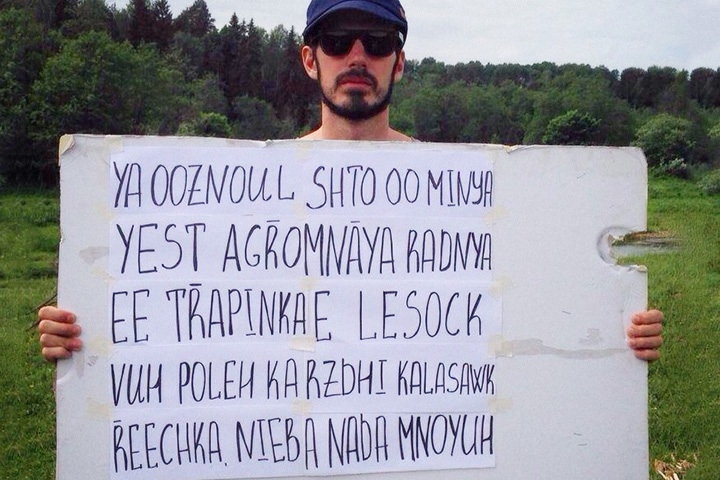 YA OOZNOUL SHTO OO MINYA
YEST AGROMNĀYA RADNYA
EE TRAPINKA E LESOCK
VUH POLEH KARZDHI KALASAWK
REECHKA, NIEBA NADA MNOYUH